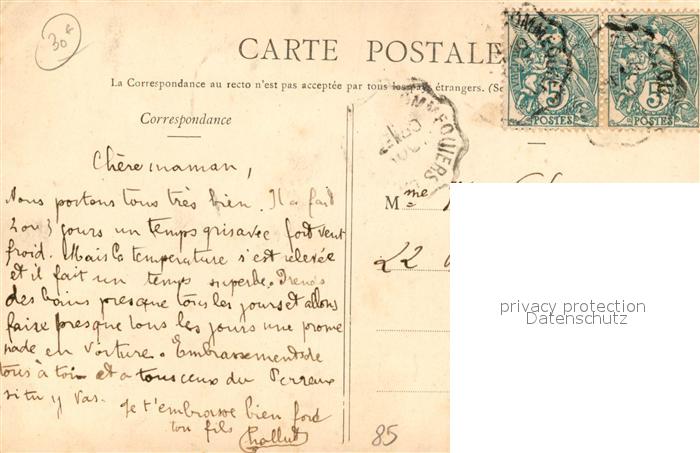 30€
CARTE POSTALE
La Correspondance au recto n'est pas acceptée par tous les pays étrangers. (Se
Correspondance
5 5
POSTES POSTES
COMMEQUIERS
Chère maman,
Nous portons tous très bien. Il a fait
2 ou 3 jours un temps gris avec fort vent
froid. Mais la température s'est relevée
et il fait un temps superbe. Prends
des bains presque tous les jours et allons
faire presque tous les jours une prome
nade en voiture. Embrassements de
tous à toi et a tous ceux du Perreux
si tu y vas. Je t'embrasse bien fort
ton fils
Mme
22
85
privacy protection
Datenschutz